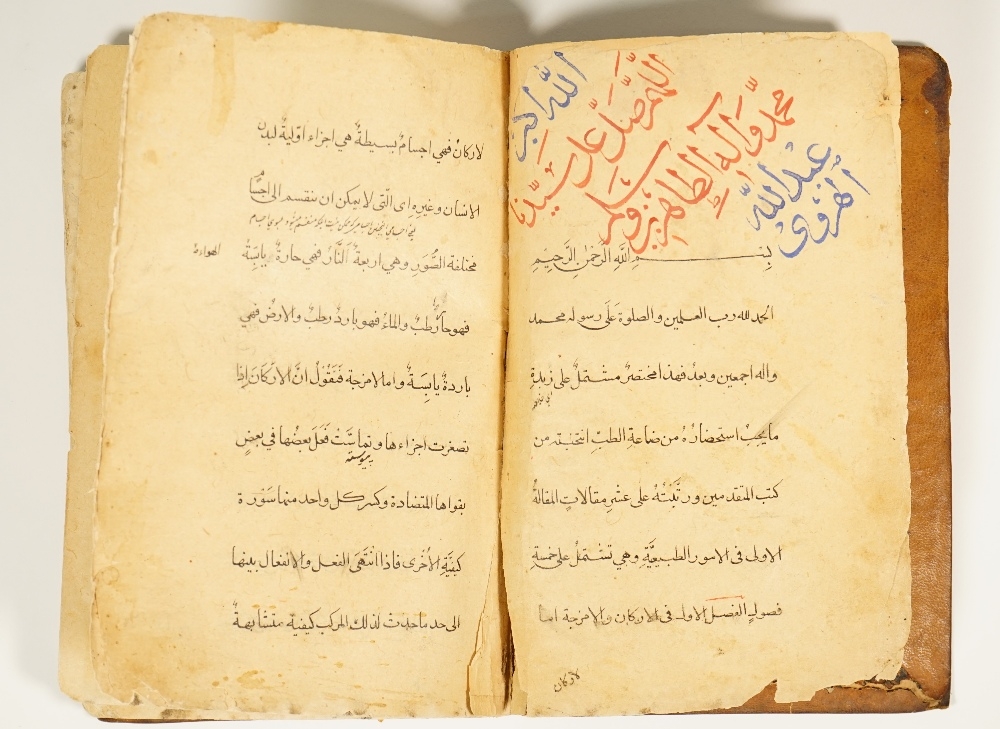 الله اكبر
اللهم صل على سيدنا
محمد وآله الطاهرين وسلم
عبد الله
الهروي
بسم الله الرحمن الرحيم
الحمد لله رب العلمين والصلوة عَلَى رسوله محمد
واله اجمعين وبعدُ فهذا مختصرٌ مشتملٌ على زبدةِ
ما يجبُ استحضارُهُ من صناعةِ الطبِّ انتخبته من
كتب المتقدمين ورتَّبْتُهُ على عشرِ مقالاتٍ المقالةُ
الاولى فى الامور الطبيعيَّةِ وهي تشتملُ على خمسةِ
فصولٍ الفصل الاول فى الاركان والامزجة اما
لاركان
لاركانُ فهي اجسامٌ بسيطةٌ هي اجزاء اوّليةٌ لبدن
الانسان وغيرِه اى الّتى لا يمكن ان ننقسم الى اجسامٍ
مختلفة الصُّورِ وهي اربعةٌ النَّارُ فهي حارةٌ يابِسَةٌ
الهواء
فهو حارٌّ رطبٌ والماءُ فهو باردٌ رطبٌ والارضُ فهي
باردةٌ يابِسَةٌ واما الامزجة فنَقُوْلُ انَّ الاركَانَ اِذا
تصغرت اجزاءها وتماسَّتْ فَعَلَ بعضُها فى بعضٍ
پیوسته
بقواها المتضادة وكسر كل واحد منها سَوْرة
كيفيَّةِ الأُخْرى فاذا انْتَهَى الفعل والانفعال بينها
الى حد ما حدث لذلك المركب كيفية متشابهةٌ